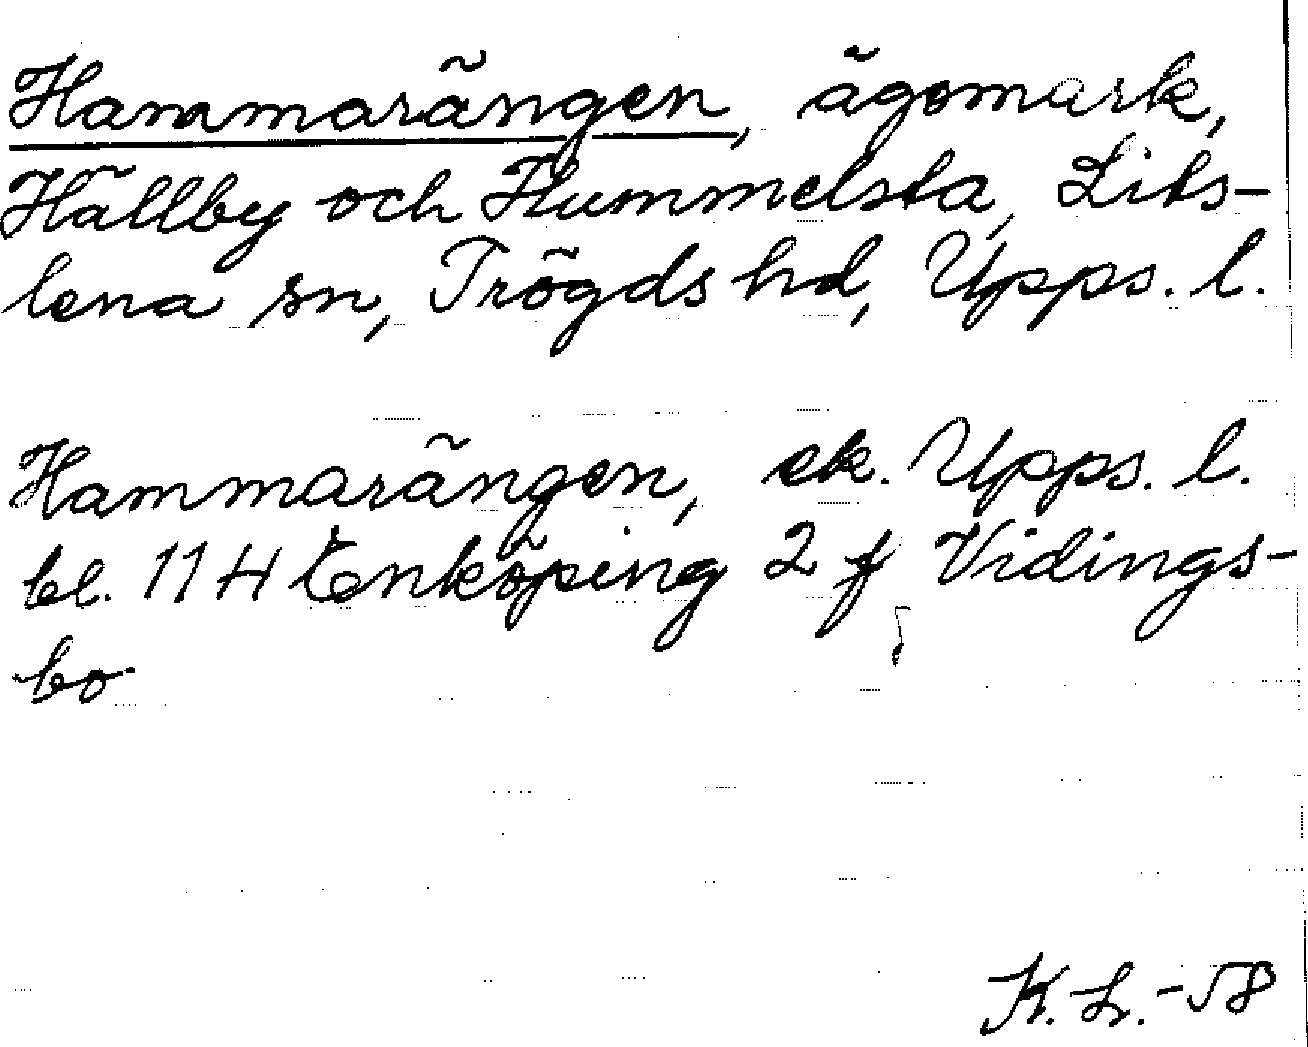 Hammarängen, ägomark,
Hällby och Hummelsta, Lits-
lena sn, Trögds hd, Upps. l.
Hammarängen, ek. Upps. l.
bl. 11 H Enköping 2 f Vidings-
bo
K. L. -58